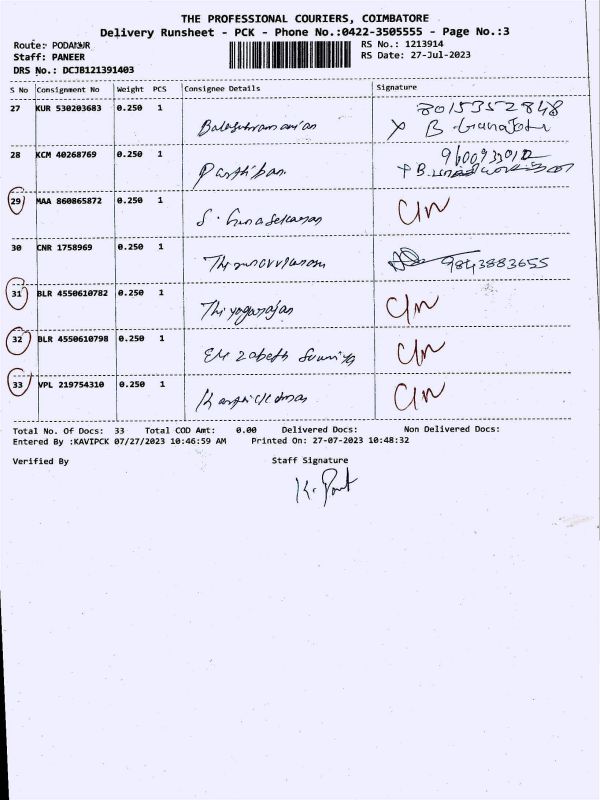 THE PROFESSIONAL COURIERS, COIMBATORE
Delivery Runsheet - PCK - Phone No.:0422-3505555 - Page No.:3
Route: PODANUR
RS No.: 1213914
Staff: PANEER
RS Date: 27-Jul-2023
DRS No.: DCJB121391403
S No Consignment No Weight PCS Consignee Details Signature
27 KUR 530203683 0.250 1 Balasubramanian 8015352848
X B
28 KCM 40268769 0.250 1 Parthiban
29 MAA 860865872 0.250 1 S. Gunasekaran C/n
30 CNR 1758969 0.250 1 9843883655
31 BLR 4550610782 0.250 1 Thiyagarajan C/n
32 BLR 4550610798 0.250 1 Elizabeth C/n
33 VPL 219754310 0.250 1 C/n
Total No. Of Docs: 33 Total COD Amt: 0.00 Delivered Docs: Non Delivered Docs:
Entered By :KAVIPCK 07/27/2023 10:46:59 AM Printed On: 27-07-2023 10:48:32
Verified By Staff Signature